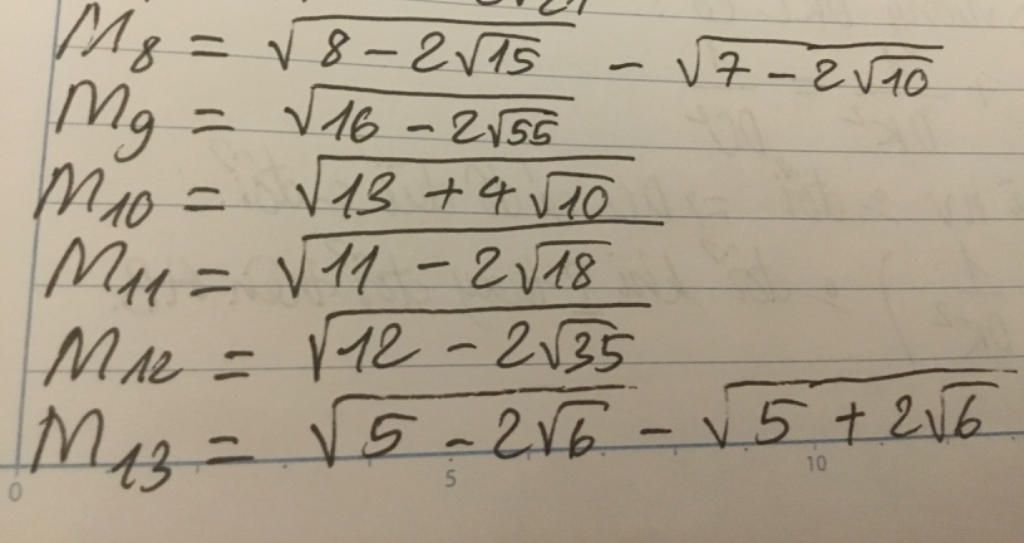 M₈ = √(8 - 2√15) - √(7 - 2√10)
M₉ = √(16 - 2√55)
M₁₀ = √(13 + 4√10)
M₁₁ = √(11 - 2√18)
M₁₂ = √(12 - 2√35)
M₁₃ = √(5 - 2√6) - √(5 + 2√6)
0 5 10